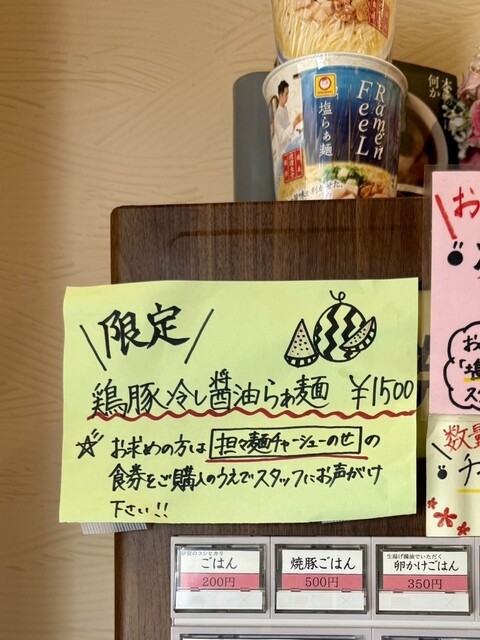 Ramen
FeeL
塩らぁ麺
限定
鶏豚冷し醤油らぁ麺 ¥1500
☆ お求めの方は 担々麺チャーシューのせ の
食券をご購入のうえでスタッフにお声がけ
下さい!!
お
お
「塩
ス
数量
チ
伊賀のコシヒカリ
ごはん
200円
焼豚ごはん
500円
生揚げ醤油でいただく
卵かけごはん
350円